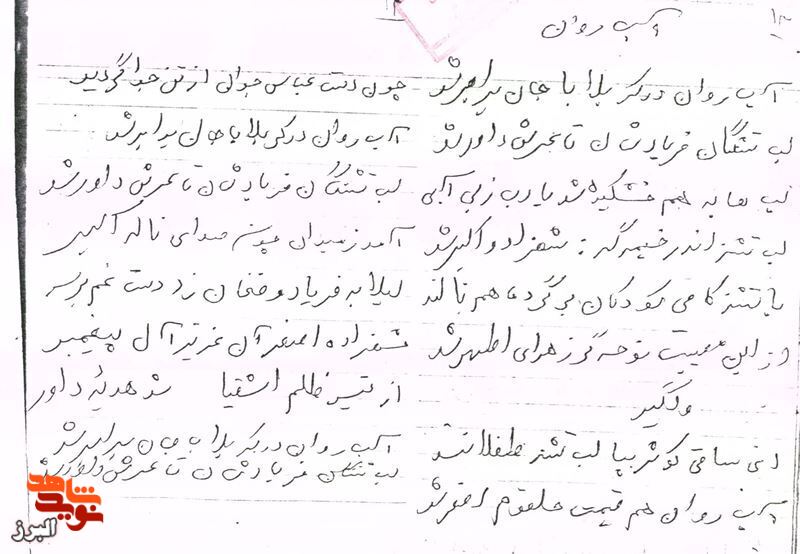 ۱۳
آب روان
آب روان در کربلا با جان برابر شد
لب تشنگان فریادشان تا عرش داور شد
لب ها به هم خشکیده شد یا رب ز بی آبی
لب تشنه اندر خیمه گه شهزاده اکبر شد
با تشنه کامی کودکان بر گرد ماهم نالند
از این مصیبت نوحه گر زهرای اطهر شد
دلگیر
ای ساقی کوثر بیا لب تشنه طفلانند
آب روان هم قیمت حلقوم اصغر شد
چون دست عباس جوان از تن جدا گردید
آب روان در کربلا با جان برابر شد
لب تشنگان فریادشان تا عرش داور شد
آمد ز میدان چون صدای ناله اکبر
لیلا به فریاد و فغان زد دست غم بر سر
شهزاده اصغر آن عزیز آل پیغمبر
از تیر ظلم اشقیا شد هدیهٔ داور
آب روان در کربلا با جان برابر شد
لب تشنگان فریادشان تا عرش داور شد
نوید شاهد
البرز